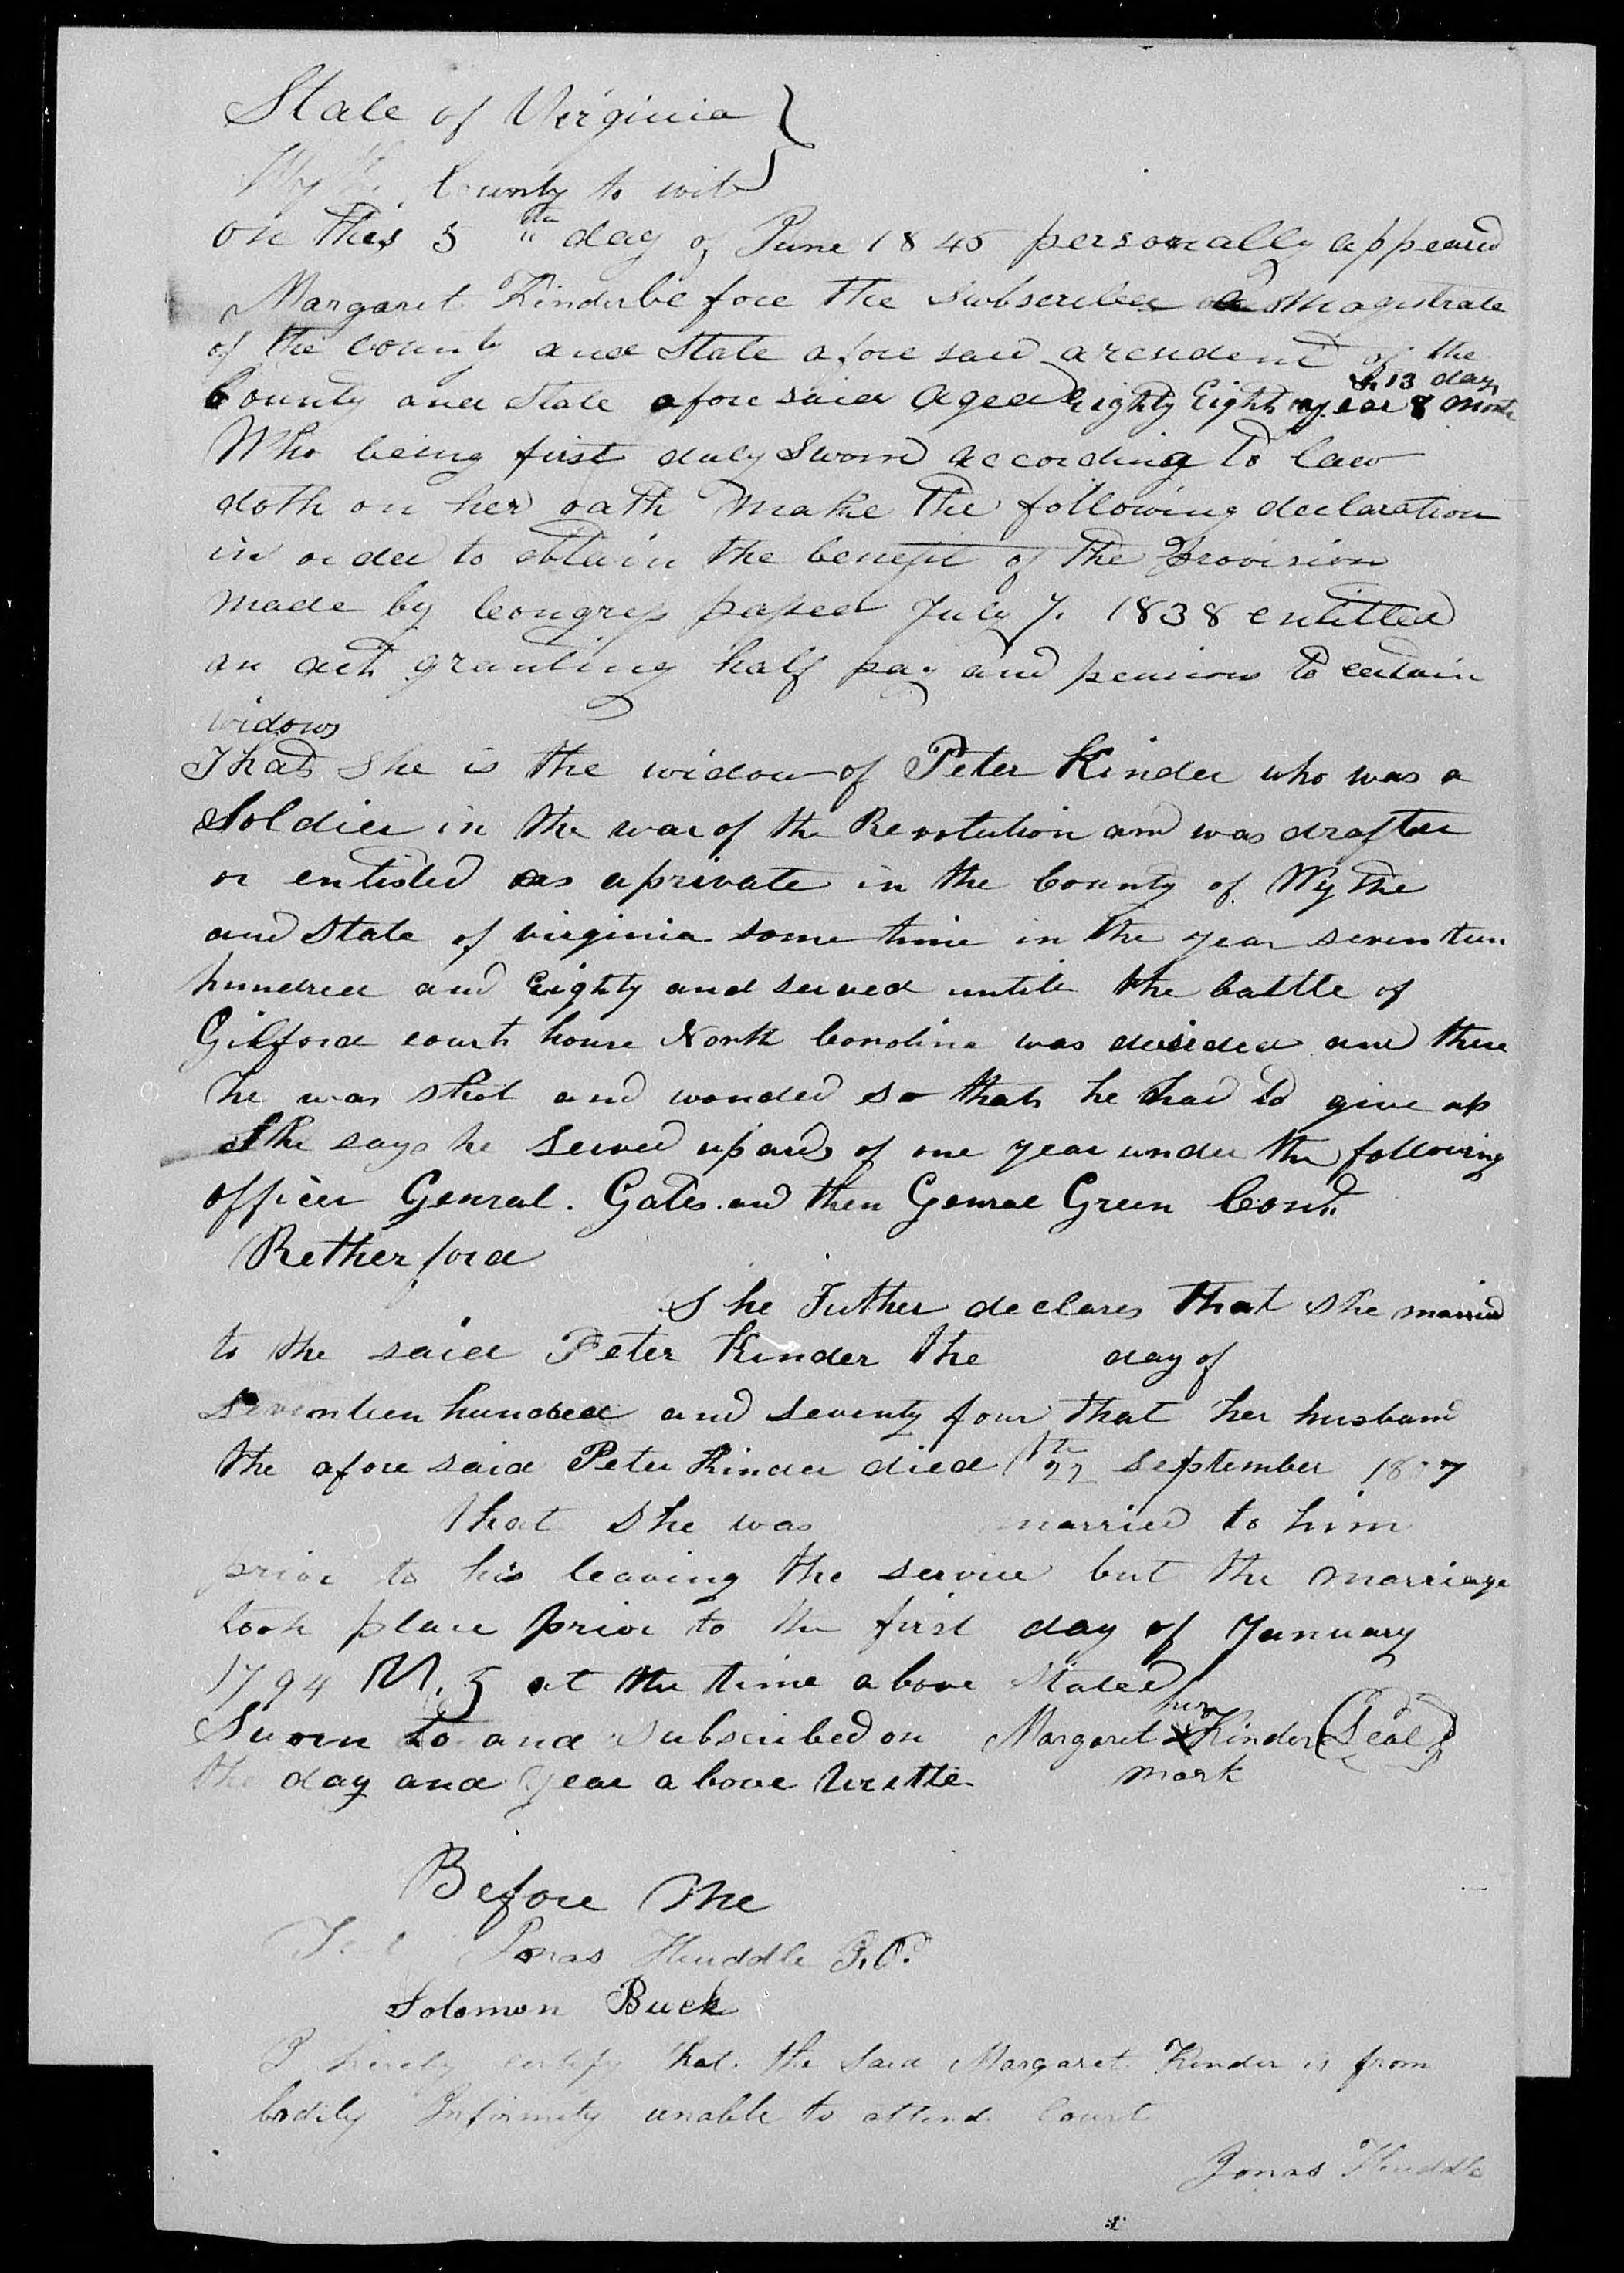 State of Virginia }
County to wit }
On this 5th day of June 1845 personally appeared
Margaret Kinder before the subscriber a Magistrate
of the County and State afore said a resident of the
& 13 days
County and State afore said aged Eighty Eight year 8 month
Who being first duly Sworn according to law
doth on her oath Make The following declaration
in order to obtain the benefit of The Provision
made by Congress passed July 7. 1838 entitled
an act granting half pay and pensions to certain
widows
That She is the widow of Peter Kinder who was a
Soldier in the war of the Revolution and was drafted
or enlisted as a private in the County of Wythe
and State of virginia some time in the year seventeen
hundred and Eighty and served untill the battle of
Gilford court house North Corolina was decided and there
he was shot and wonded so that he had to give up
She says he Served upards of one year under the following
officer Genral. Gates. and then Genral Green
Retherford
She Futher declares That she married
to the said Peter Kinder the day of
Seventeen hundred and seventy four that her husband
the afore said Peter Kinder died 22 September
That she was married to him
prior to his leaving the service but the marriage
took place prior to the first day of January
1794 at the time above stated
her
Sworn to and subscribed on Margaret X Kinder (Seal)
the day and year above Writte
mark
Before Me
Jonas Huddle J.P.
Solomon Buck
I hereby certify that the said Margaret Kinder is from
bodily Infirmity unable to attend Court
Jonas Huddle